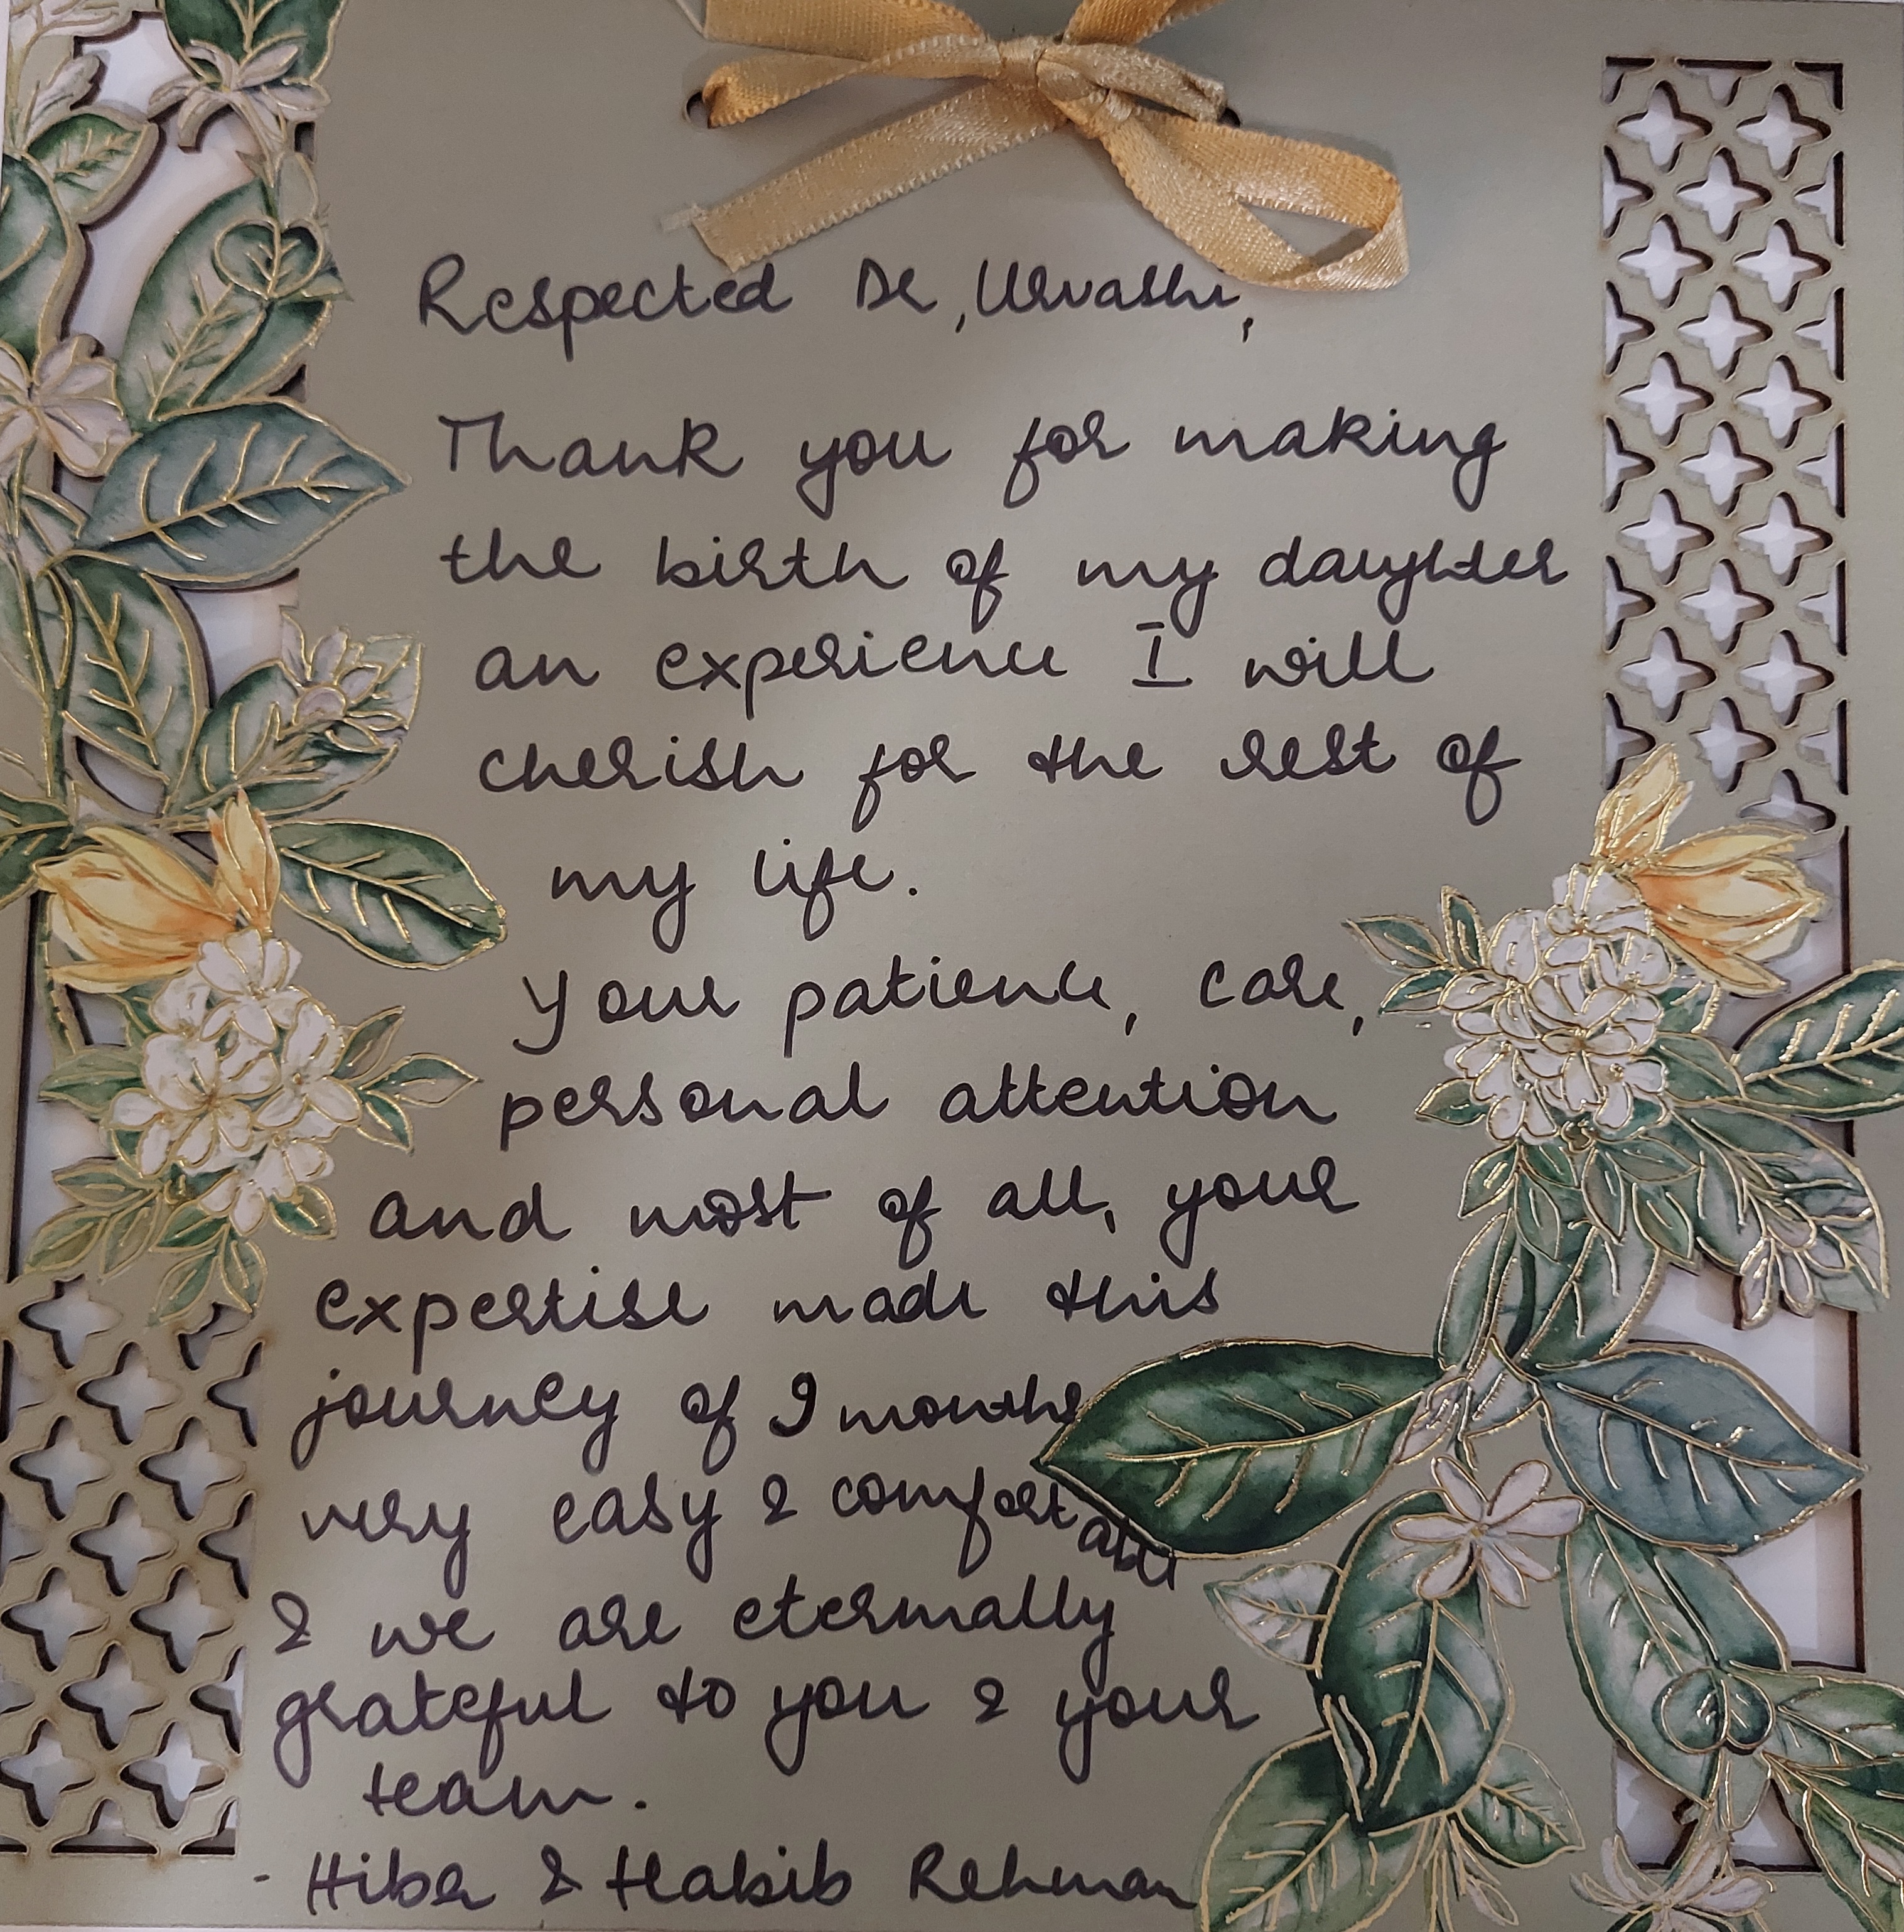 Respected Dr, Urvashi,
Thank you for making
the birth of my daughter
an experience I will
cherish for the rest of
my life.
Your patience, care,
personal attention
and most of all, your
expertise made this
journey of 9 months
very easy & comfortable
& we are eternally
grateful to you & your
team.
- Hiba & Habib Rehman